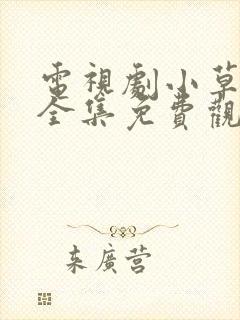 電視劇小草
全集免費觀
来廣营